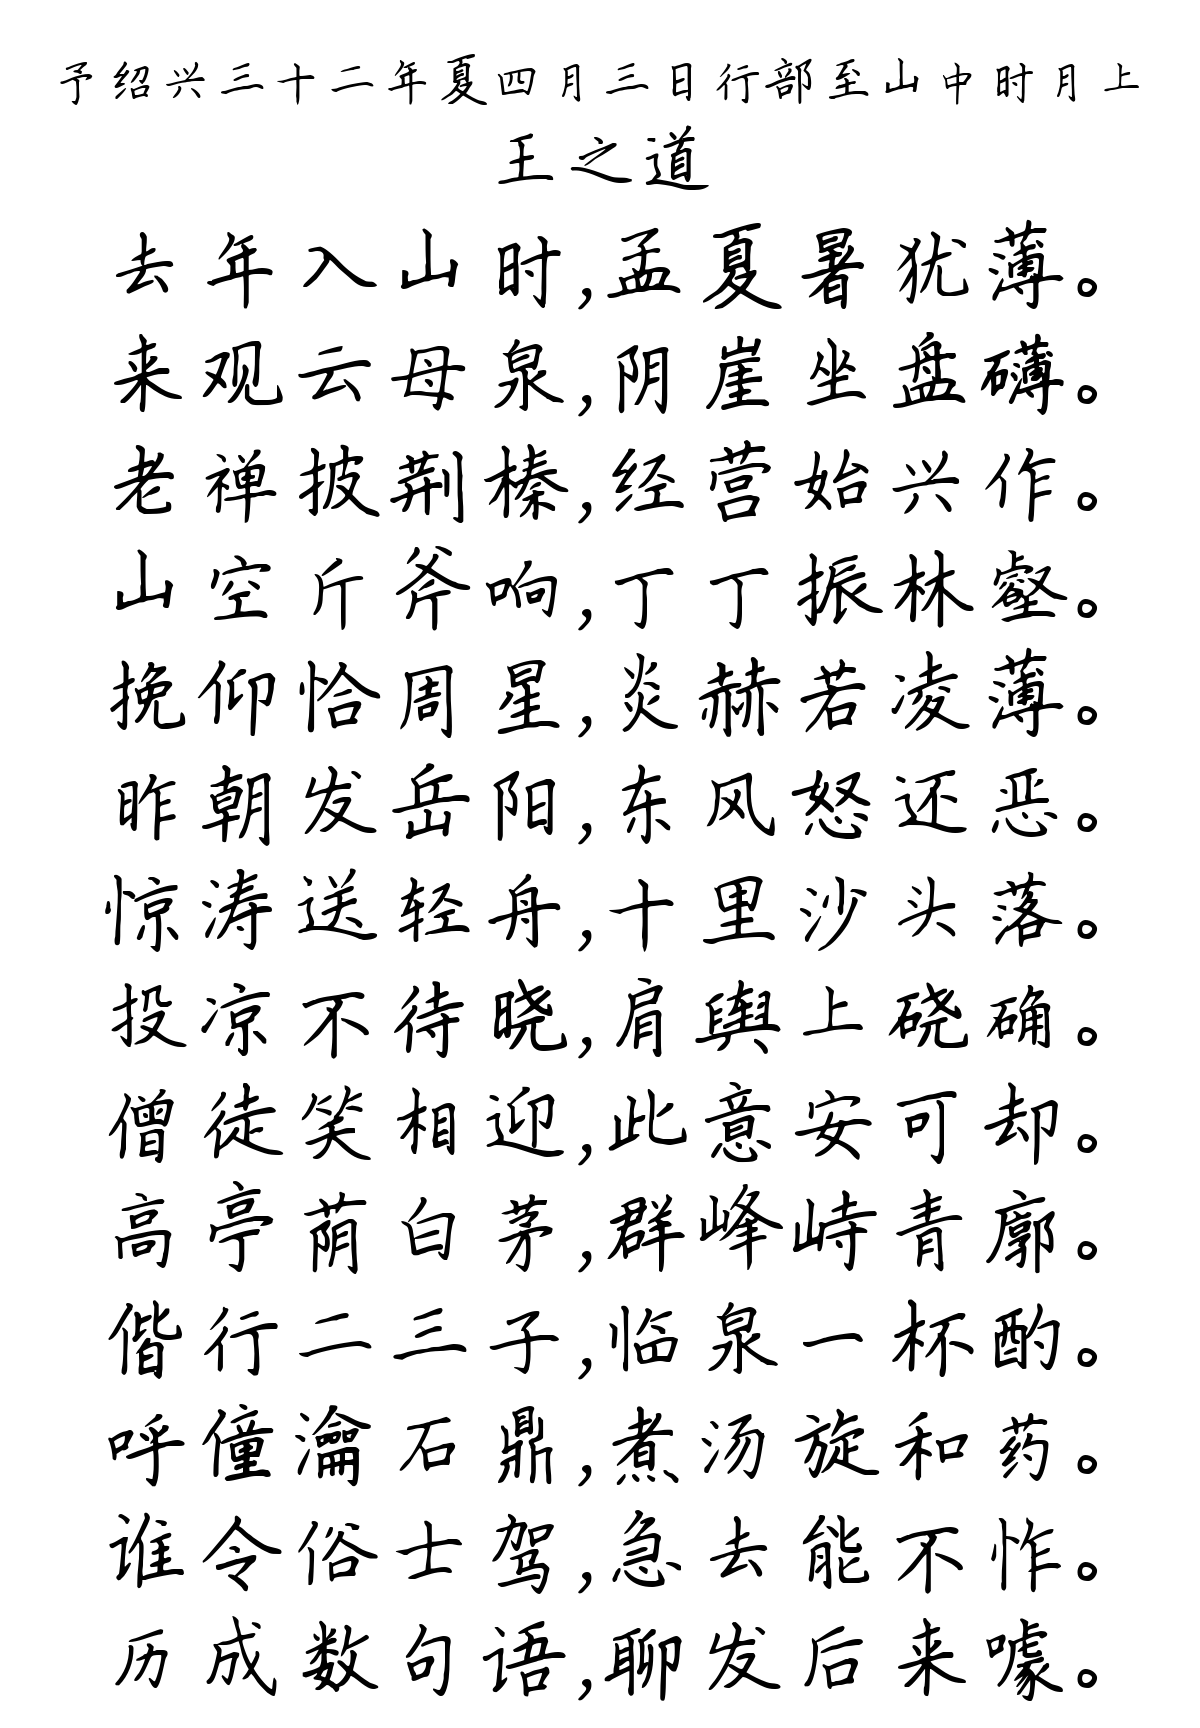 予绍兴三十二年夏四月三日行部至山中时月上
王之道
去年入山时,孟夏暑犹薄。
来观云母泉,阴崖坐盘礴。
老禅披荆榛,经营始兴作。
山空斤斧响,丁丁振林壑。
挽仰恰周星,炎赫若凌薄。
昨朝发岳阳,东风怒还恶。
惊涛送轻舟,十里沙头落。
投凉不待晓,肩舆上硗确。
僧徒笑相迎,此意安可却。
高亭荫白茅,群峰峙青廓。
偕行二三子,临泉一杯酌。
呼僮瀹石鼎,煮汤旋和药。
谁令俗士驾,急去能不怍。
历成数句语,聊发后来噱。